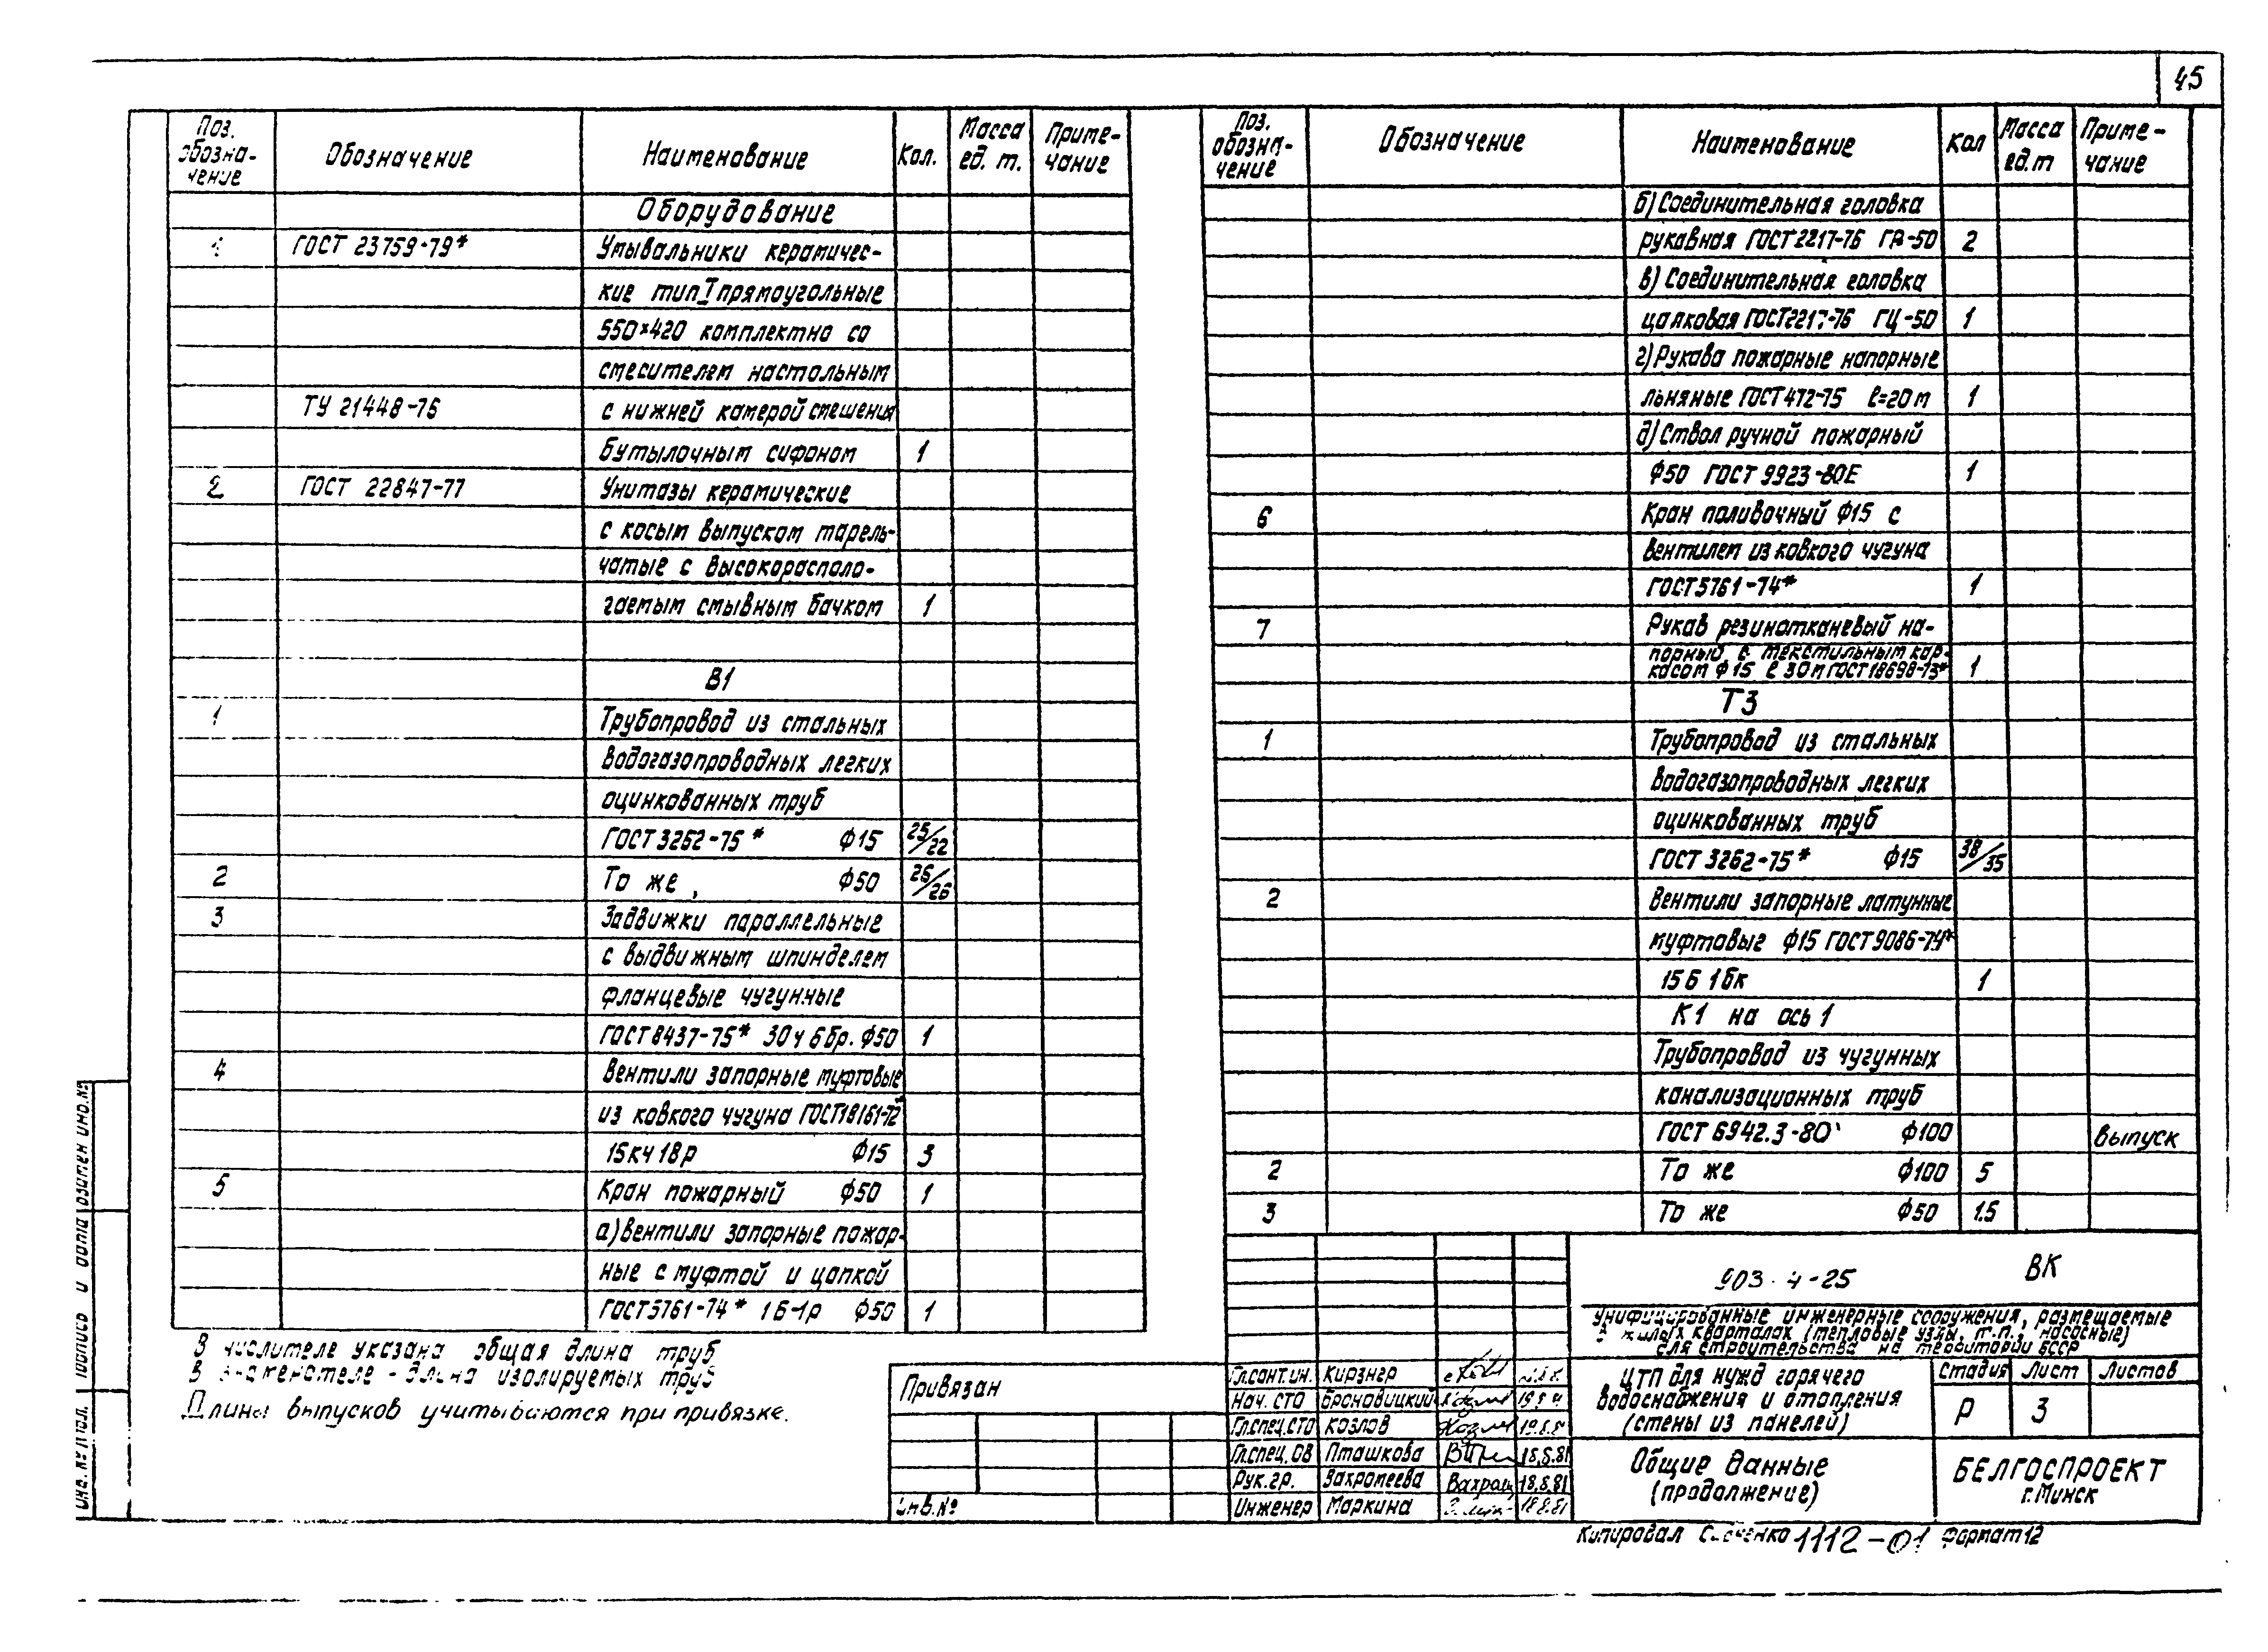 45
Поз. обозна-чение Обозначение Наименование Кол. Масса ед. т. Приме-чание
Оборудование
ГОСТ 23759-79* Умывальники керамичес-
кие тип I прямоугольные
550×420 комплектно со
смесителем настольным
ТУ 21448-76 с нижней камерой смешения
бутылочным сифоном 1
2 ГОСТ 22847-77 Унитазы керамические
с косым выпуском тарель-
чатые с высокораспола-
гаемым смывным бачком 1
В1
1 Трубопровод из стальных
водогазопроводных легких
оцинкованных труб
ГОСТ 3262-75* ф15 25/22
2 То же, ф50 26/26
3 Задвижки параллельные
с выдвижным шпинделем
фланцевые чугунные
ГОСТ 8437-75* 30ч 6бр. ф50 1
4 Вентили запорные муфтовые
из ковкого чугуна ГОСТ 18161-72*
15кч 18р ф15 3
5 Кран пожарный ф50 1
а) вентили запорные пожар-
ные с муфтой и цапкой
ГОСТ 5761-74* 1Б-1р ф50 1
В числителе указана общая длина труб
В знаменателе - длина изолируемых труб
Длины выпусков учитываются при привязке.
Поз. обозна-чение Обозначение Наименование Кол Масса ед.т Приме-чание
б) Соединительная головка
рукавная ГОСТ 2217-76 ГР-50 2
в) Соединительная головка
цапковая ГОСТ 2217-76 ГЦ-50 1
г) Рукава пожарные напорные
льняные ГОСТ 472-75 ℓ=20м 1
д) Ствол ручной пожарный
ф50 ГОСТ 9923-80Е 1
6 Кран поливочный ф15 с
вентилем из ковкого чугуна
ГОСТ 5761-74* 1
7 Рукав резинотканевый на-
порный с текстильным кар-
касом ф15 ℓ 30м ГОСТ 18698-73* 1
Т3
1 Трубопровод из стальных
водогазопроводных легких
оцинкованных труб
ГОСТ 3262-75* ф15 38/35
2 Вентили запорные латунные
муфтовые ф15 ГОСТ 9086-74*
15Б 1бк 1
К1 на ось 1
Трубопровод из чугунных
канализационных труб
ГОСТ 6942.3-80 ф100 выпуск
2 То же ф100 5
3 То же ф50 1.5
903-4-25 ВК
Унифицированные инженерные сооружения, размещаемые
в жилых кварталах (тепловые узлы, т.п., насосные)
для строительства на территории БССР
Привязан
Инв.№
Гл.сант.ин. Кирзнер
Нач. СТО Броновицкий
Гл.спец.СТО Козлов
Гл.спец.ОВ Пташкова 18.8.81
Рук.гр. Вахромеева 18.8.81
Инженер Маркина 18.8.81
ЦТП для нужд горячего
водоснабжения и отопления
(стены из панелей)
Стадия Лист Листов
Р 3
Общие данные
(продолжение)
БЕЛГОСПРОЕКТ
г. Минск
Копировал 1112-01 Формат 12
Инв. № подл. Подпись и дата Взамен инв.№